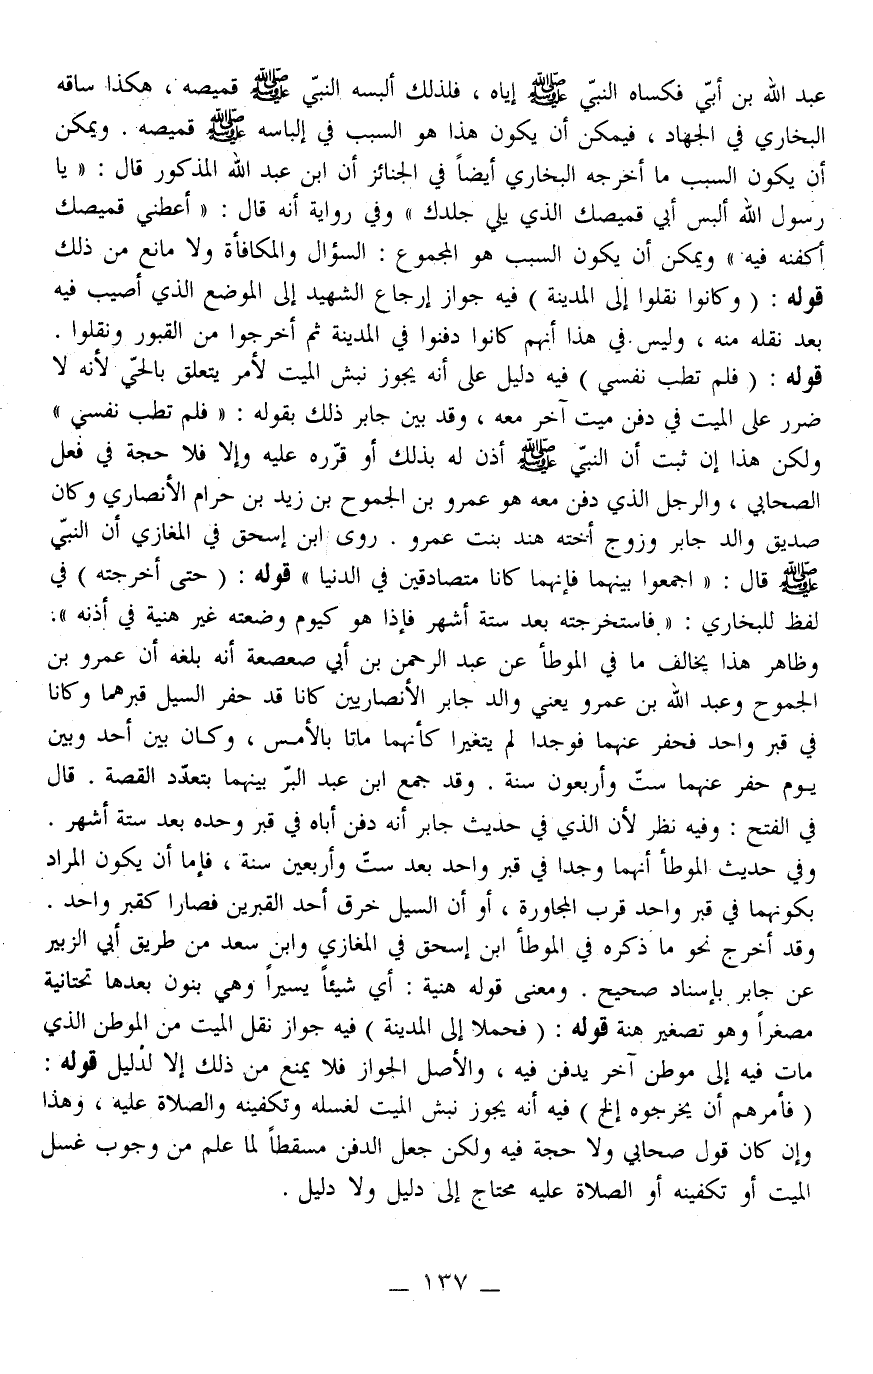 عبد الله بن أبيّ فكساه النبيّ ﷺ إياه ، فلذلك ألبسه النبيّ ﷺ قميصه ، هكذا ساقه
البخاري في الجهاد ، فيمكن أن يكون هذا هو السبب في إلباسه ﷺ قميصه . ويمكن
أن يكون السبب ما أخرجه البخاري أيضاً في الجنائز أن ابن عبد الله المذكور قال : « يا
رسول الله ألبس أبي قميصك الذي يلي جلدك » وفي رواية أنه قال : « أعطني قميصك
أكفنه فيه » ويمكن أن يكون السبب هو المجموع : السؤال والمكافأة ولا مانع من ذلك
قوله : ( وكانوا نقلوا إلى المدينة ) فيه جواز إرجاع الشهيد إلى الموضع الذي أصيب فيه
بعد نقله منه ، وليس في هذا أنهم كانوا دفنوا في المدينة ثم أخرجوا من القبور ونقلوا .
قوله : ( فلم تطب نفسي ) فيه دليل على أنه يجوز نبش الميت لأمر يتعلق بالحيّ لأنه لا
ضرر على الميت في دفن ميت آخر معه ، وقد بين جابر ذلك بقوله : « فلم تطب نفسي »
ولكن هذا إن ثبت أن النبيّ ﷺ أذن له بذلك أو قرّره عليه وإلا فلا حجة في فعل
الصحابي ، والرجل الذي دفن معه هو عمرو بن الجموح بن زيد بن حرام الأنصاري وكان
صديق والد جابر وزوج أخته هند بنت عمرو . روى ابن إسحق في المغازي أن النبيّ
ﷺ قال : « اجمعوا بينهما فإنهما كانا متصادقين في الدنيا » قوله : ( حتى أخرجته ) في
لفظ للبخاري : « فاستخرجته بعد ستة أشهر فإذا هو كيوم وضعته غير هنية في أذنه ».
وظاهر هذا يخالف ما في الموطأ عن عبد الرحمن بن أبي صعصعة أنه بلغه أن عمرو بن
الجموح وعبد الله بن عمرو يعني والد جابر الأنصاريين كانا قد حفر السيل قبرهما وكانا
في قبر واحد فحفر عنهما فوجدا لم يتغيرا كأنهما ماتا بالأمس ، وكان بين أحد وبين
يوم حفر عنهما ستّ وأربعون سنة . وقد جمع ابن عبد البرّ بينهما بتعدّد القصة . قال
في الفتح : وفيه نظر لأن الذي في حديث جابر أنه دفن أباه في قبر وحده بعد ستة أشهر .
وفي حديث الموطأ أنهما وجدا في قبر واحد بعد ستّ وأربعين سنة ، فإما أن يكون المراد
بكونهما في قبر واحد قرب المجاورة ، أو أن السيل خرق أحد القبرين فصارا كقبر واحد .
وقد أخرج نحو ما ذكره في الموطأ ابن إسحق في المغازي وابن سعد من طريق أبي الزبير
عن جابر بإسناد صحيح . ومعنى قوله هنية : أي شيئاً يسيراً وهي بنون بعدها تحتانية
مصغراً وهو تصغير هنة قوله : ( فحملا إلى المدينة ) فيه جواز نقل الميت من الموطن الذي
مات فيه إلى موطن آخر يدفن فيه ، والأصل الجواز فلا يمنع من ذلك إلا لدليل قوله :
( فأمرهم أن يخرجوه إلخ ) فيه أنه يجوز نبش الميت لغسله وتكفينه والصلاة عليه ، وهذا
وإن كان قول صحابي ولا حجة فيه ولكن جعل الدفن مسقطاً لما علم من وجوب غسل
الميت أو تكفينه أو الصلاة عليه محتاج إلى دليل ولا دليل .
_ ١٣٧ _